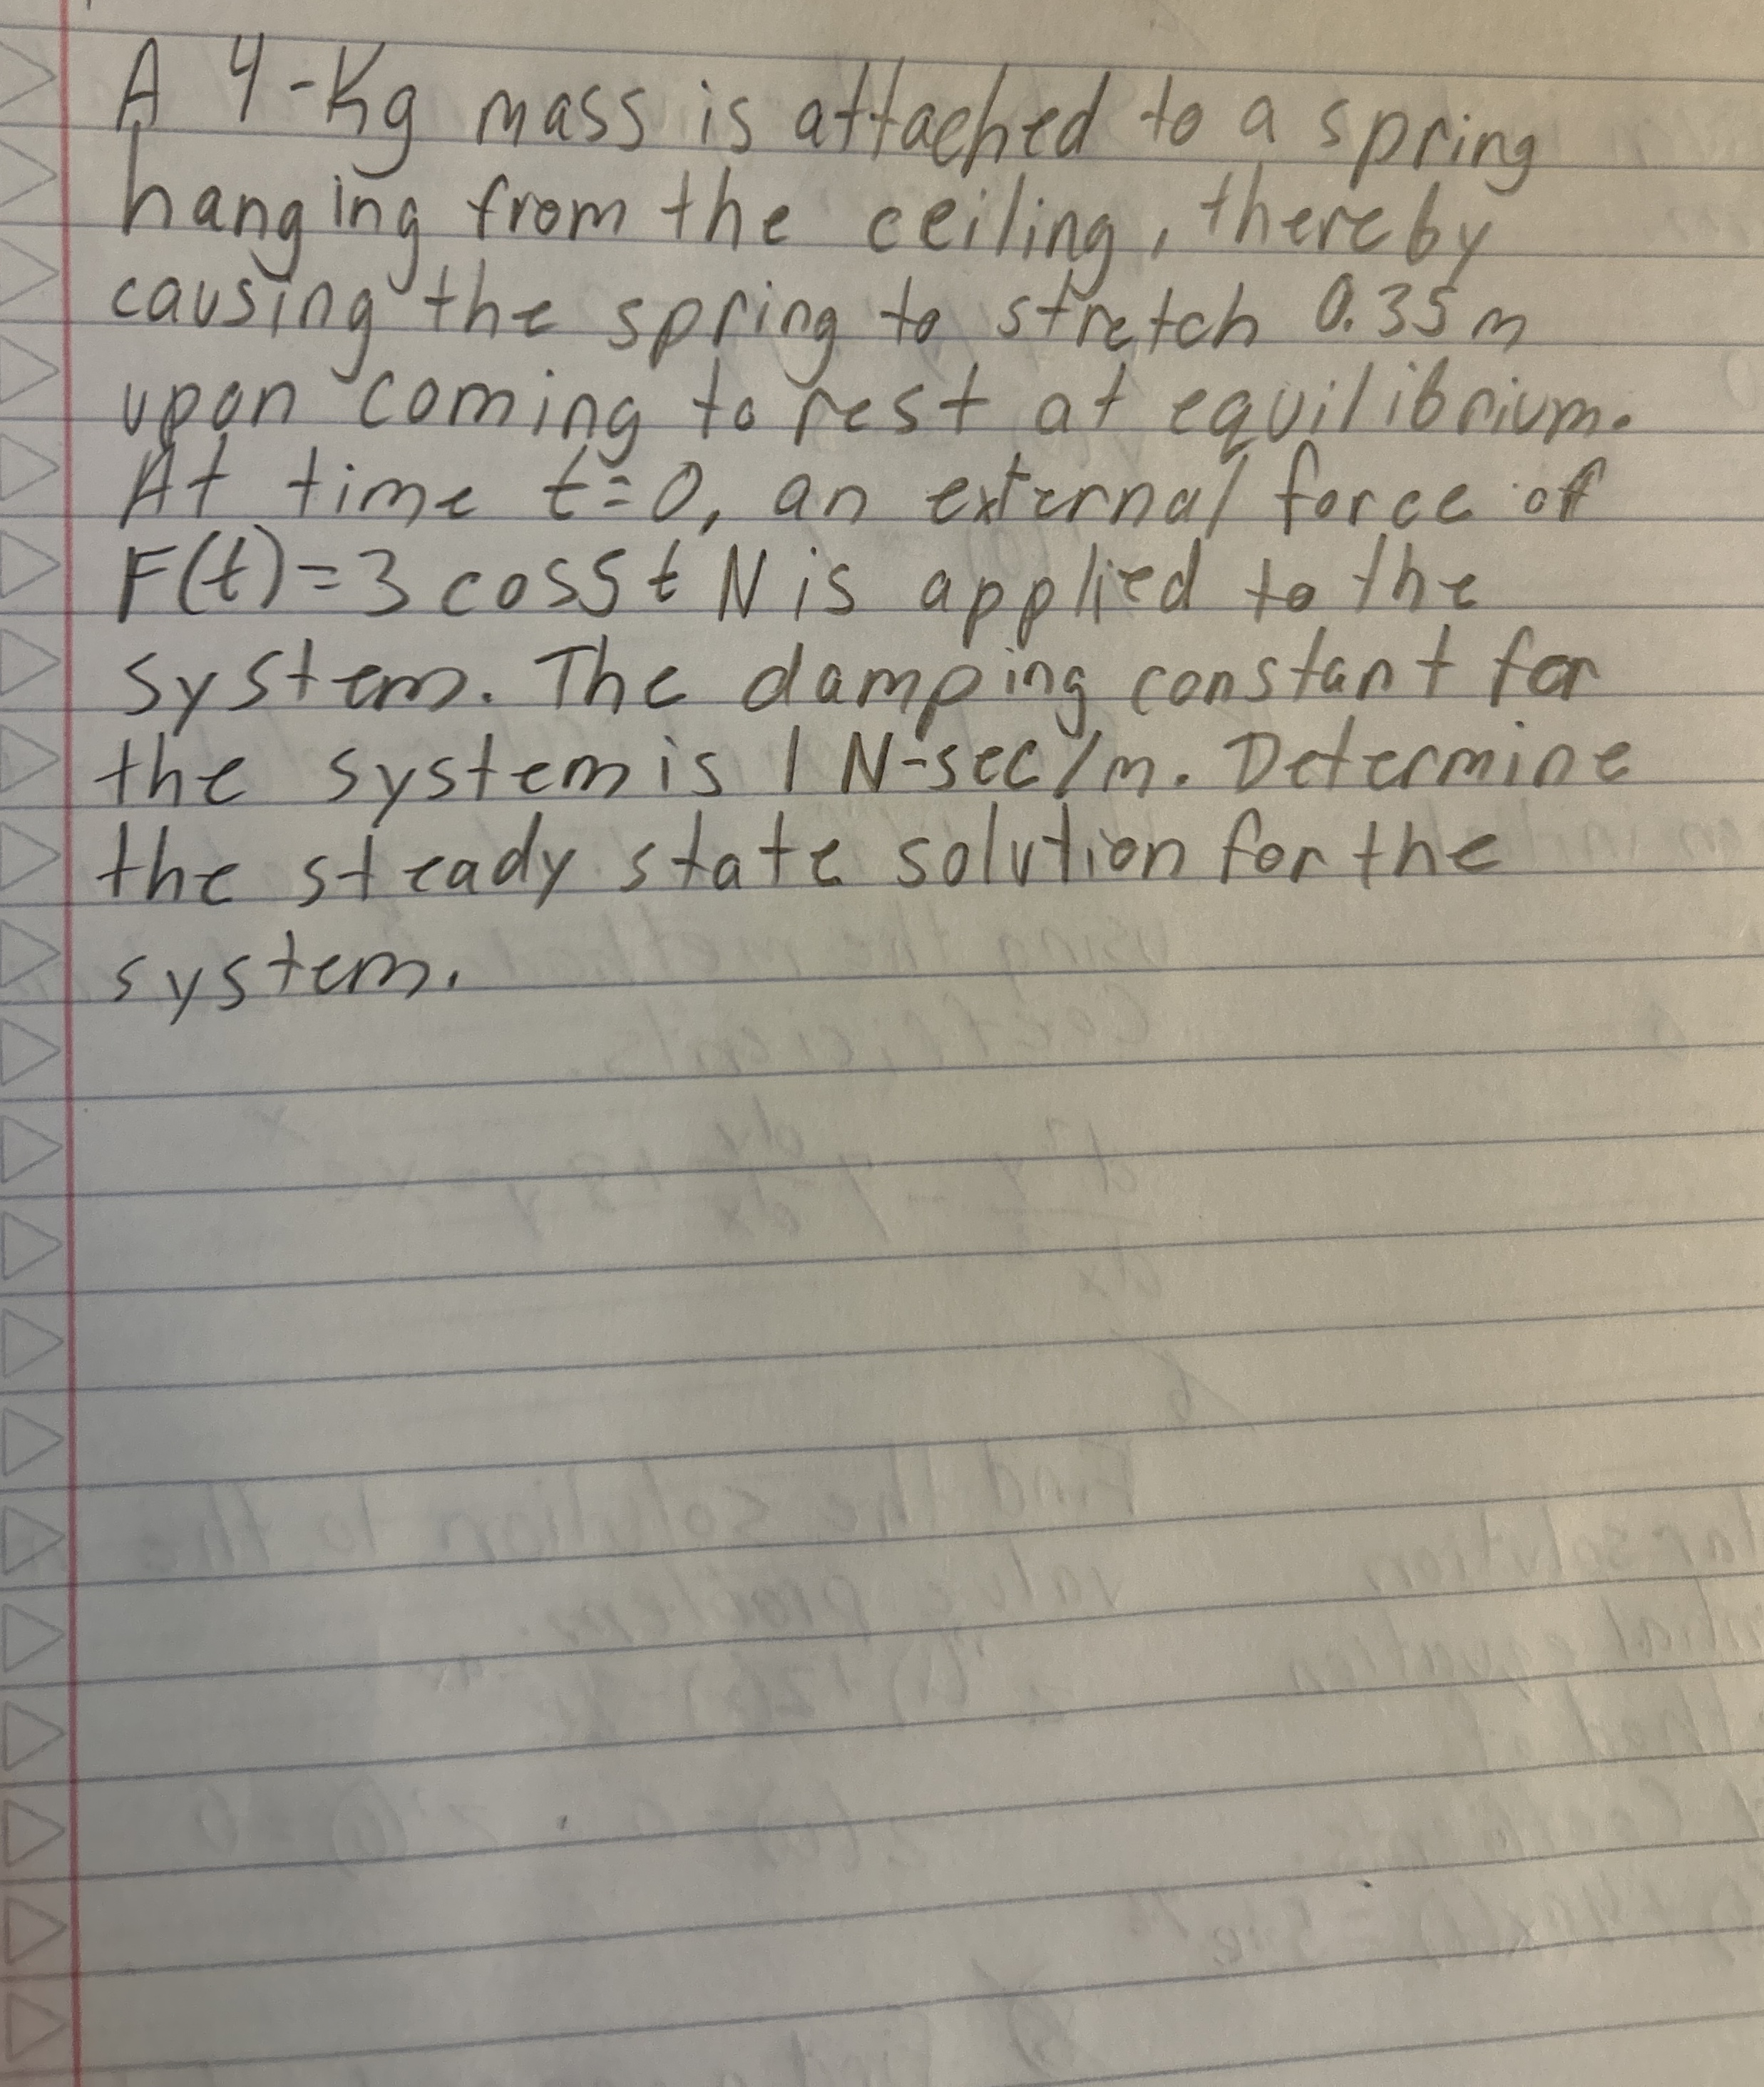 A 4-Kg mass is attached to a spring
hanging from the ceiling, thereby
causing the spring to stretch 0.35m
upon coming to rest at equilibrium.
At time t=0, an external force of
F(t)=3 cos5t N is applied to the
system. The damping constant for
the system is 1 N-sec/m. Determine
the steady state solution for the
system.